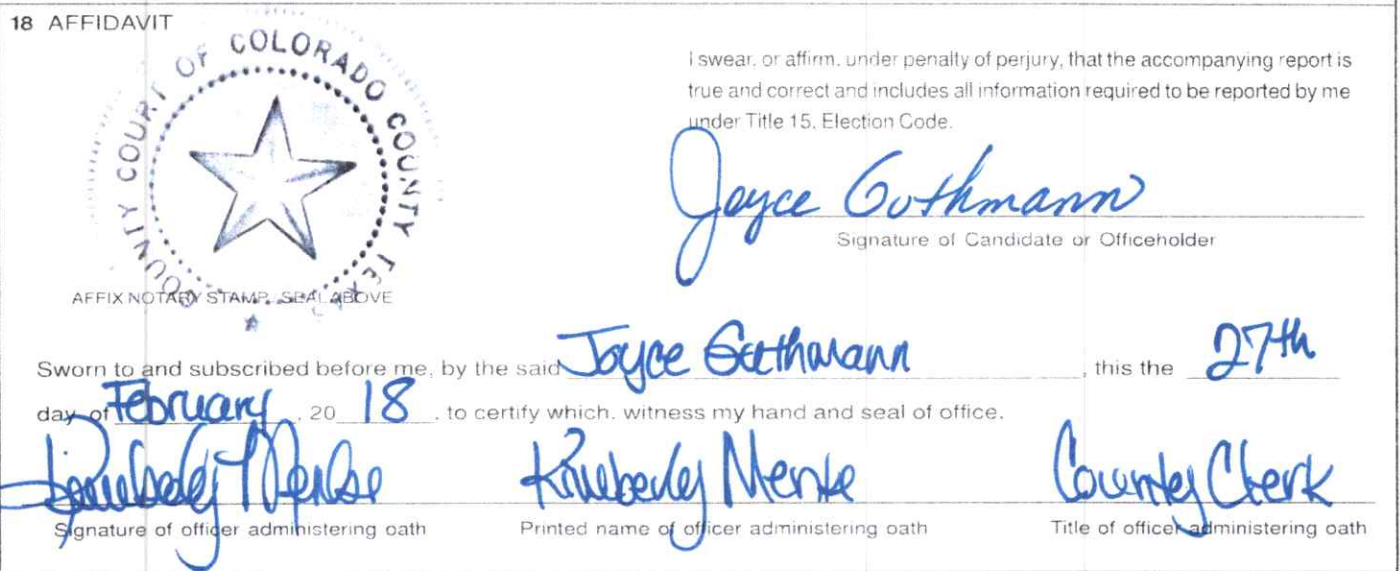 18 AFFIDAVIT
COUNTY COURT OF COLORADO COUNTY TEXAS
I swear, or affirm, under penalty of perjury, that the accompanying report is
true and correct and includes all information required to be reported by me
under Title 15, Election Code.
Joyce Guthmann
Signature of Candidate or Officeholder
AFFIX NOTARY STAMP SEAL ABOVE
Sworn to and subscribed before me, by the said Joyce Guthmann, this the 27th
day of February, 20 18, to certify which, witness my hand and seal of office.
Kimberly Menke Kimberly Menke County Clerk
Signature of officer administering oath Printed name of officer administering oath Title of officer administering oath